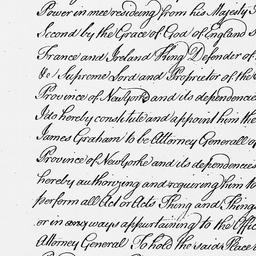 Power in mee residing from his Majesty
Second by the Grace of God of England
France and Ireland King Defender of
&c) Supreme Lord and Proprietor of the
Province of New York and its dependencies
I do hereby constitute and appoint him the
James Graham to be Attorney Generall of
Province of New Yorke and its dependencies
hereby authorizing and requireing him to
performe all Act or Acts Thing and Things
or in any ways appurtaining to the Office
Attorney General To hold the said Place